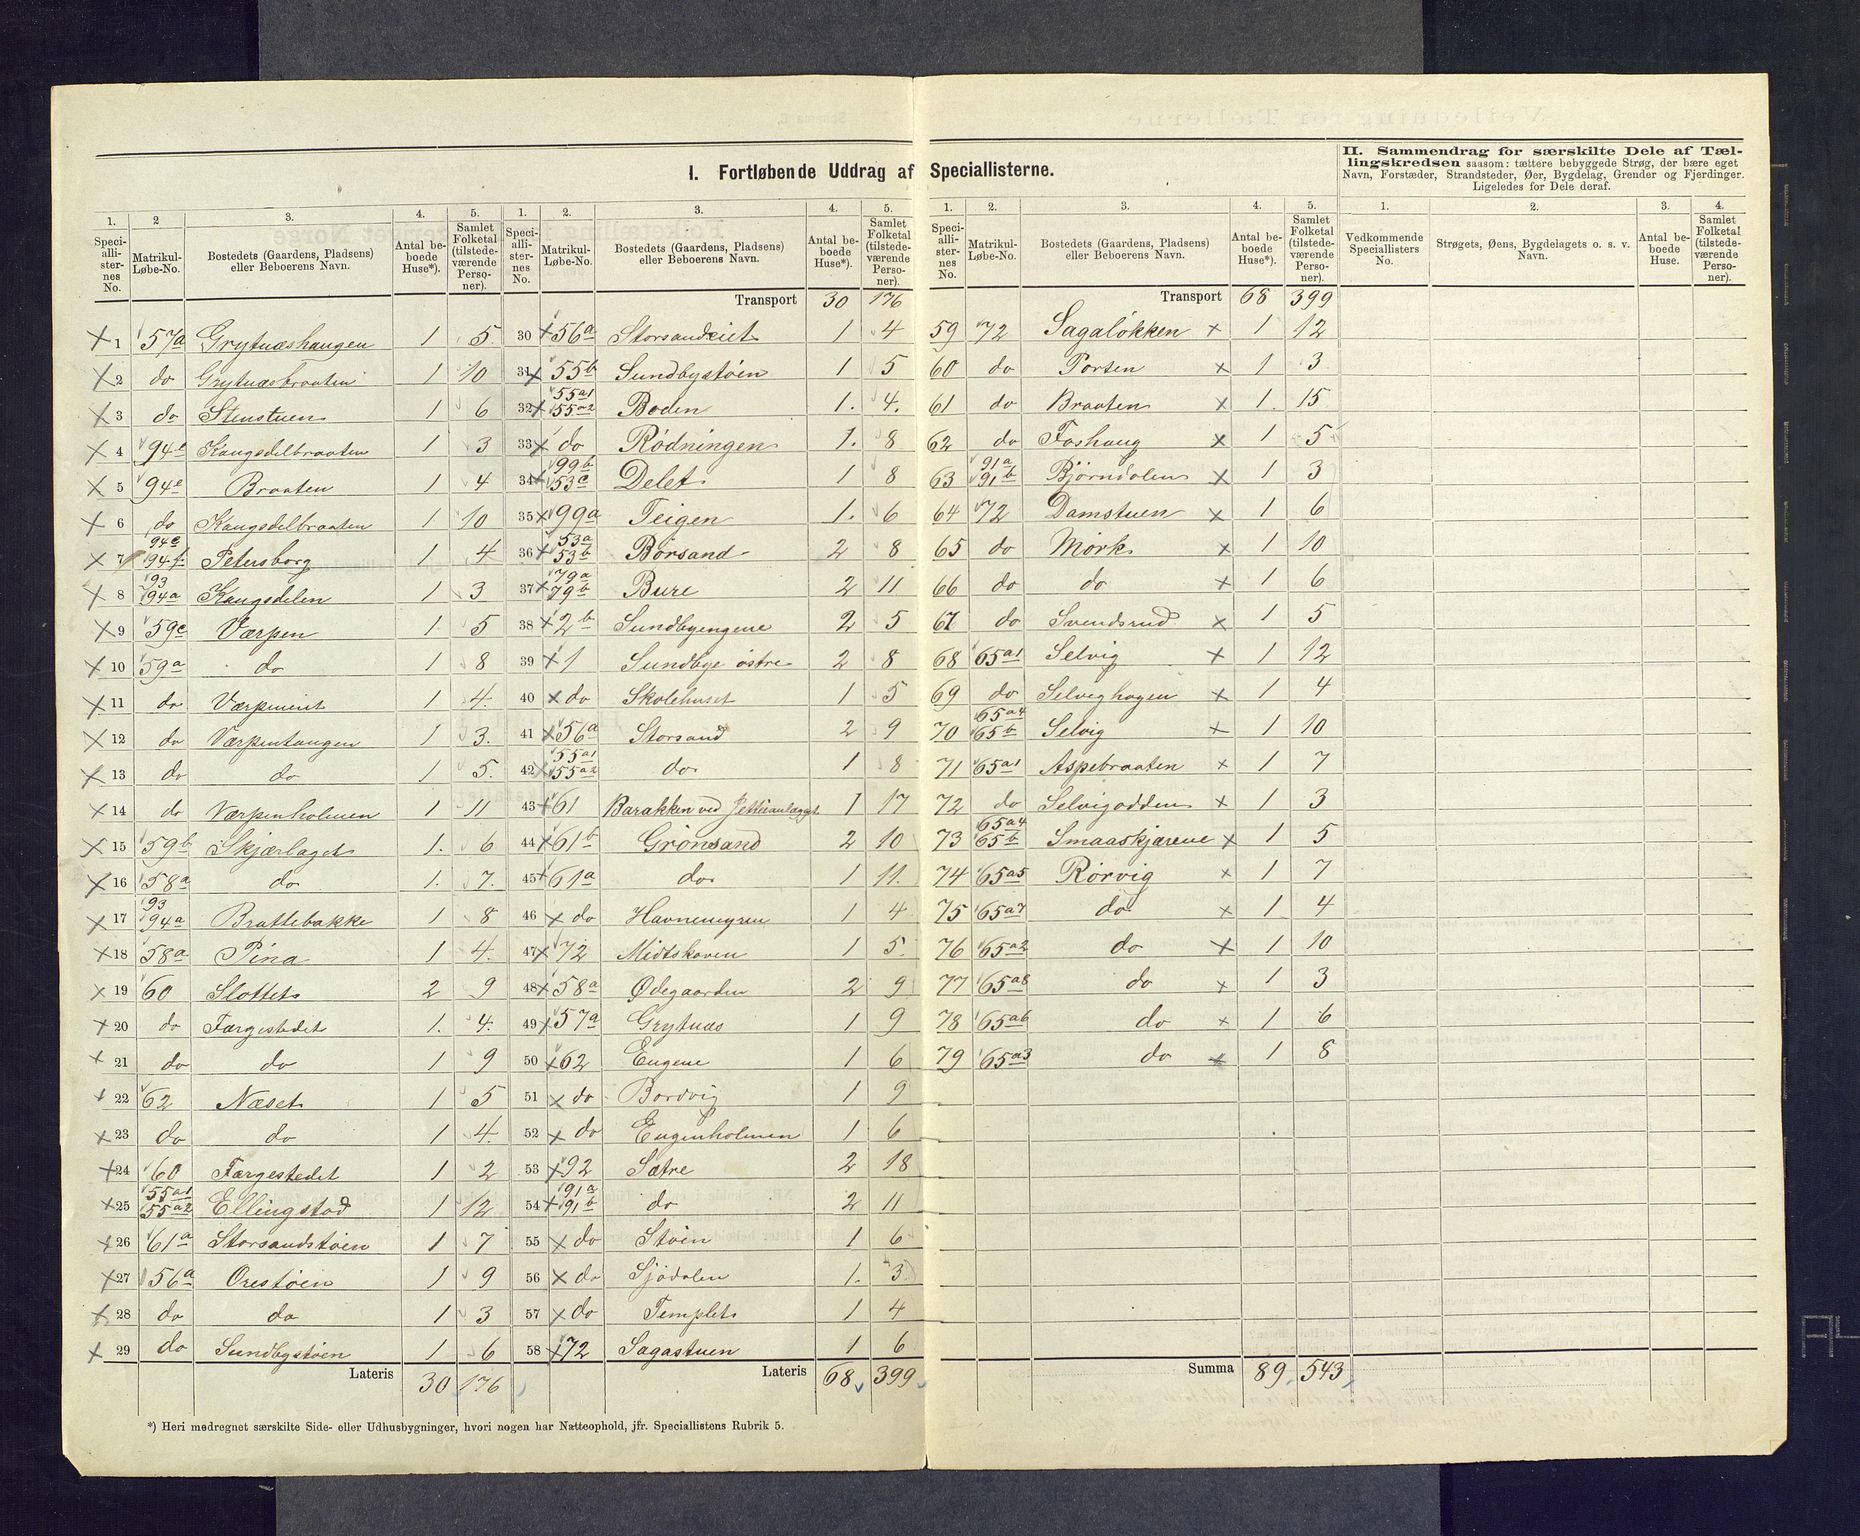 I. Fortløbende Uddrag af Speciallisterne.
II. Sammendrag for særskilte Dele af Tællingskredsen saasom: tættere bebyggede Strøg, der bære eget Navn, Forstæder, Strandsteder, Øer, Bygdelag, Grender og Fjerdinger. Ligeledes for Dele deraf.
1. 2 3. 4. 5. 1. 2. 3. 4. 5. 1. 2. 3. 4. 5. 1. 2. 3. 4.
Speciallisternes No. Matrikul-Løbe-No. Bostedets (Gaardens, Pladsens) eller Beboerens Navn. Antal beboede Huse*). Samlet Folketal (tilstedeværende Personer).
Speciallisternes No. Matrikul-Løbe-No. Bostedets (Gaardens, Pladsens) eller Beboerens Navn. Antal beboede Huse*). Samlet Folketal (tilstedeværende Personer).
Speciallisternes No. Matrikul-Løbe-No. Bostedets (Gaardens, Pladsens) eller Beboerens Navn. Antal beboede Huse*). Samlet Folketal (tilstedeværende Personer).
Vedkommende Speciallisters No. Strøgets, Øens, Bygdelagets o. s. v. Navn. Antal beboede Huse. Samlet Folketal (tilstedeværende Personer).
× 1 57a Grytnæshaugen 1 5
× 2 do Grytnæsbraaten 1 10
× 3 do Stenstuen 1 6
× 4 94e Kaugsdelbraaten 1 3
× 5 94e Braaten 1 4
× 6 do Kaugsdelbraaten 1 10
× 7 94e 94f Petersborg 1 4
× 8 93 94a Kaugsdelen 1 3
× 9 59c Værpen 1 5
× 10 59a do 1 8
× 11 do Værpeneiet 1 4
× 12 do Værpentangen 1 3
× 13 do do 1 5
× 14 do Værpenholmen 1 11
× 15 59b Skjærlaget 1 6
× 16 58a do 1 7
× 17 93 94a Brattebakke 1 8
× 18 58a Pina 1 4
× 19 60 Slottet 2 9
× 20 do Færgestedet 1 4
× 21 do do 1 9
× 22 62 Næset 1 5
× 23 do do 1 4
× 24 60 Færgestedet 1 2
× 25 55a1 55a2 Ellingstad 1 12
× 26 61a Storsandstøen 1 7
× 27 56a Orestøen 1 9
× 28 do do 1 3
× 29 do Sundbystøen 1 6
Lateris 30 176
Transport 30 176
30 × 56a Storsandeiet 1 4
31 × 55b Sundbystøen 1 5
32 × 55a1 55a2 Boden 1 4
33 × do Rødningen 1 8
34 × 99b 53c Delet 1 8
35 × 99a Teigen 1 6
36 × 53a 53b Børsand 2 8
37 × 79a 79b Bure 2 11
38 × 2b Sundbyengene 2 5
39 × 1 Sundbye østre 2 8
40 × do Skolehuset 1 5
41 × 56a Storsand 2 9
42 × 55a1 55a2 do 1 8
43 × 61 Barakken ved Jetteanlægget 1 17
44 × 61b Grønsand 2 10
45 × 61a do 1 11
46 × do Havnemyren 1 4
47 × 72 Midtskoven 1 5
48 × 58a Ødegaarden 2 9
49 × 57a Grytnæs 1 9
50 × 62 Engene 1 6
51 × do Bordvig 1 9
52 × do Engenholmen 1 6
53 × 92 Sætre 2 18
54 × 91a 91b do 2 11
55 × do Støen 1 6
56 × do Sjødalen 1 3
57 × do Templet 1 4
58 × 72 Sagastuen 1 6
Lateris 68 399
Transport 68 399
59 72 Sagaløkken × 1 12
60 do Porten × 1 3
61 do Braaten × 1 15
62 do Foshaug × 1 5
63 91a 91b Bjørndalen × 1 3
64 72 Damstuen × 1 6
65 do Mørk × 1 10
66 do do × 1 6
67 do Svendsrud × 1 5
68 65a1 Selvig × 1 12
69 do Selvighagen × 1 4
70 65a4 65b Selvig × 1 10
71 65a1 Aspebraaten × 1 7
72 do Selvigodden × 1 3
73 65a4 65b Smaaskjærene × 1 5
74 65a5 Rørvig × 1 7
75 65a7 do × 1 4
76 65a2 do × 1 10
77 65a8 do × 1 3
78 65a6 do × 1 6
79 65a3 do × 1 8
Summa 89 543
*) Heri medregnet særskilte Side- eller Udhusbygninger, hvori nogen har Natteophold, jfr. Speciallistens Rubrik 5.